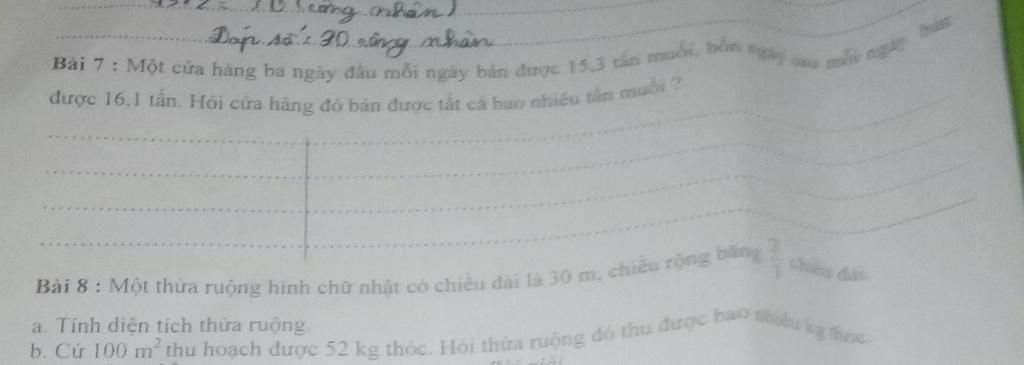 (công nhân)
Đáp số: 30 công nhân
Bài 7 : Một cửa hàng ba ngày đầu mỗi ngày bán được 15,3 tấn muối, bốn ngày sau mỗi ngày bán
được 16,1 tấn. Hỏi cửa hàng đó bán được tất cả bao nhiêu tấn muối ?
Bài 8 : Một thửa ruộng hình chữ nhật có chiều dài là 30 m, chiều rộng bằng 2/3 chiều dài.
a. Tính diện tích thửa ruộng.
b. Cứ 100 m² thu hoạch được 52 kg thóc. Hỏi thửa ruộng đó thu được bao nhiêu kg thóc.